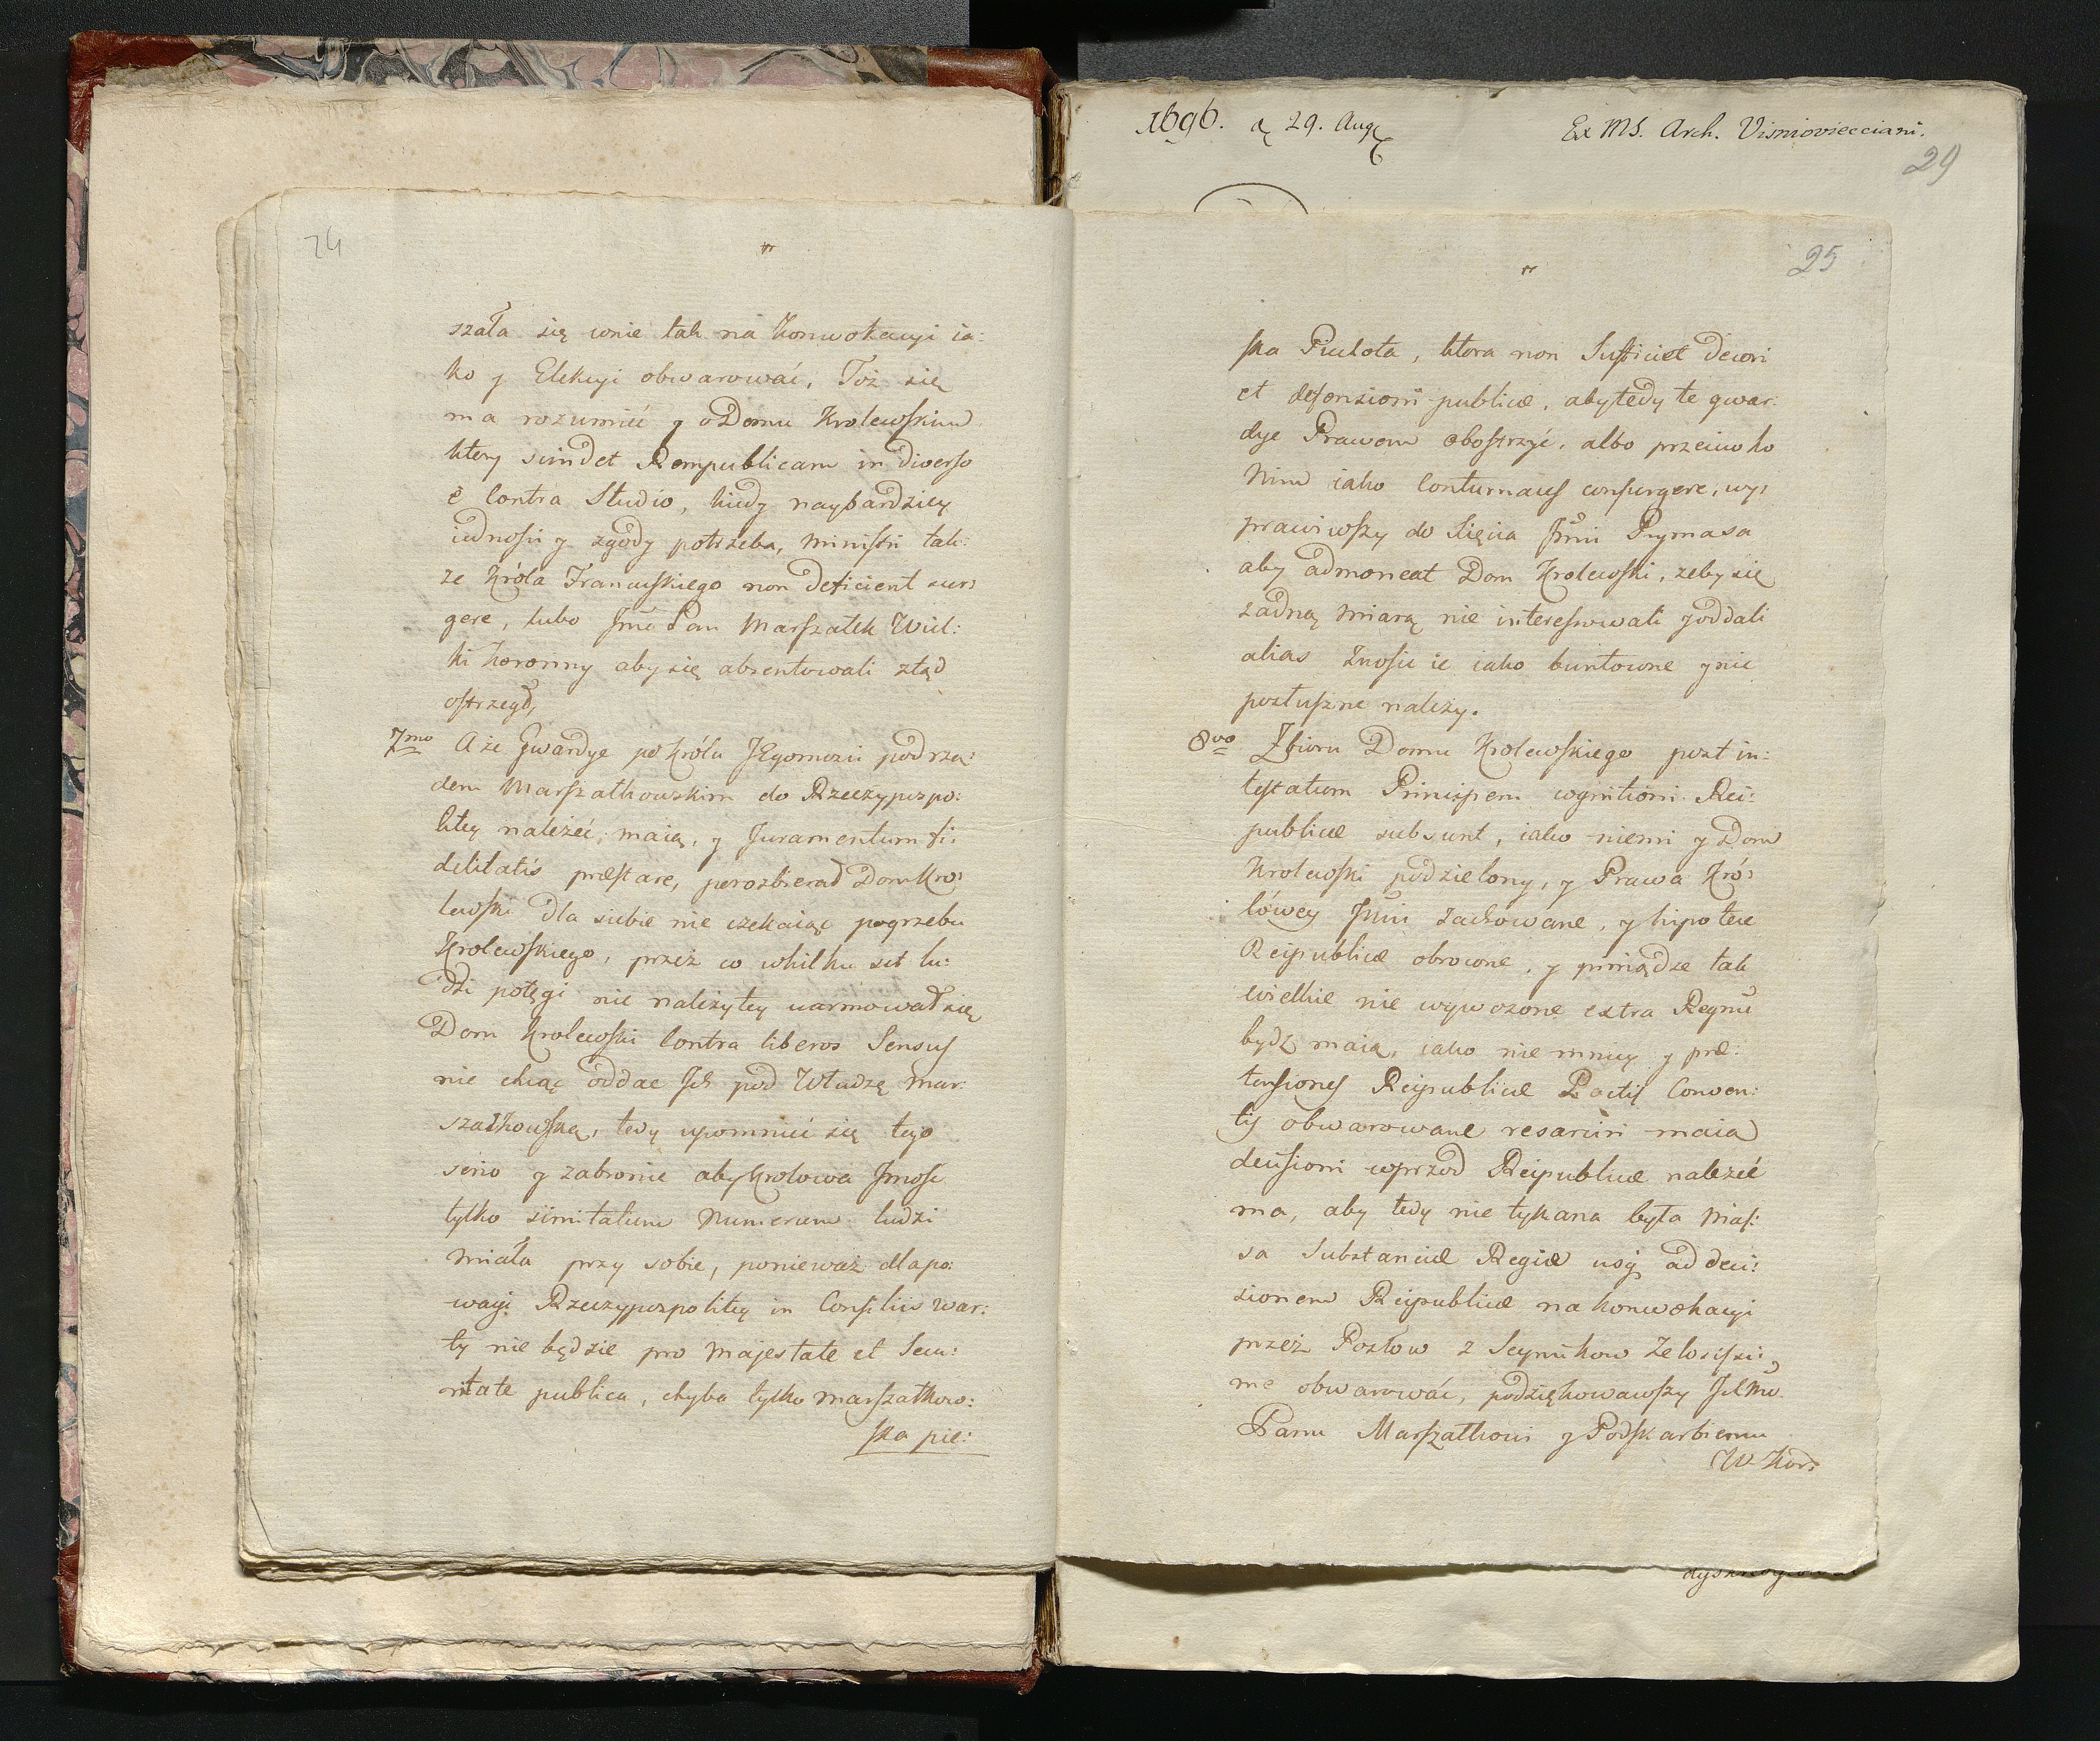 24
szała się wnie tak na Konwokacyi ia:
ko y Elekcyi obwarować, Toż się
ma rozumieć y o Domu Krolewskim
ktery scindet Rempublicam in diverso
é Contra Studio, kiedy naybardziey
iedności y zgody potrzeba, Ministri tak:
że Króla Francuskiego non deficient sur:
gere, lubo Jmć Pan Marszałek Wiel:
ki Koronny aby się absentowali ztąd
ostrzegł,
7mo A że Gwardye po Królu JEgomości pod rzą:
dem Marszałkowskim do Rzeczypospo:
litey należeć maią, y Juramentum fi:
delitatis præstare, porozbierał Dom Kro:
lewski dla siebie nie czekaiąc pogrzebu
Krolewskiego, przez co w kilku set lu:
dzi potęgi nie należytey uarmował się
Dom Krolewski Contra liberos Sensus
nie chcąc oddac Jch pod Władzę Mar:
szałkowską, tedy upomnieć się tego
serio y zabronic aby Krolowa Jmość
tylko simitalium Numerum ludzi
Miała przy sobie, ponieważ dla po:
wagi Rzeczypospolitey in Consiliis War:
ty nie będzie pro Majestate et Secu:
ritate publica, chyba tylko Marszałkow:
ska pie:
1696. d 29. Aug
Ex MS. Arch. Visniovecciani.
29
25
ska Piechota, ktora non Sufficiet decori
et defensioni publicæ, aby tedy te gwar:
dye Prawem obostrzyć, albo przeciwko
Nim iako Contumaces consurgere, wy:
prawiwszy do Xięcia Jmci Prymasa
aby admoneat Dom Krolewski, żeby się
żadną Miarą nie interessowali y oddali
alias Znosic ie iako buntowne y nie
posłuszne należy.
8vo Zbioru Domu Krolewskiego post in:
testatum Principem cognitioni Rei:
publicæ subsunt, iako niemi y Dom
Krolewski podzielony, y Prawa Kró:
lówey Jmci zachowane, y hipotece
Reipublicæ obrocone, y pieniądze tak
wielkie nie wywożone extra Regnũ
bydź maią, iako nie mniey y præ:
tensiones Reipublicæ Pactis Conven:
tis obwarowane resarciri maią
decisioni wprzod Reipublicæ należeć
ma, aby tedy nie tykana była Mas:
sa Substanciæ Regiæ usq, ad deci:
sionem Reipublicæ na Konwokacyi
przez Posłow z Seymikow Zelosissi:
me obwarować, podziękowawszy
Panu Marszałkowi y Podskarbiemu
W. Kor: